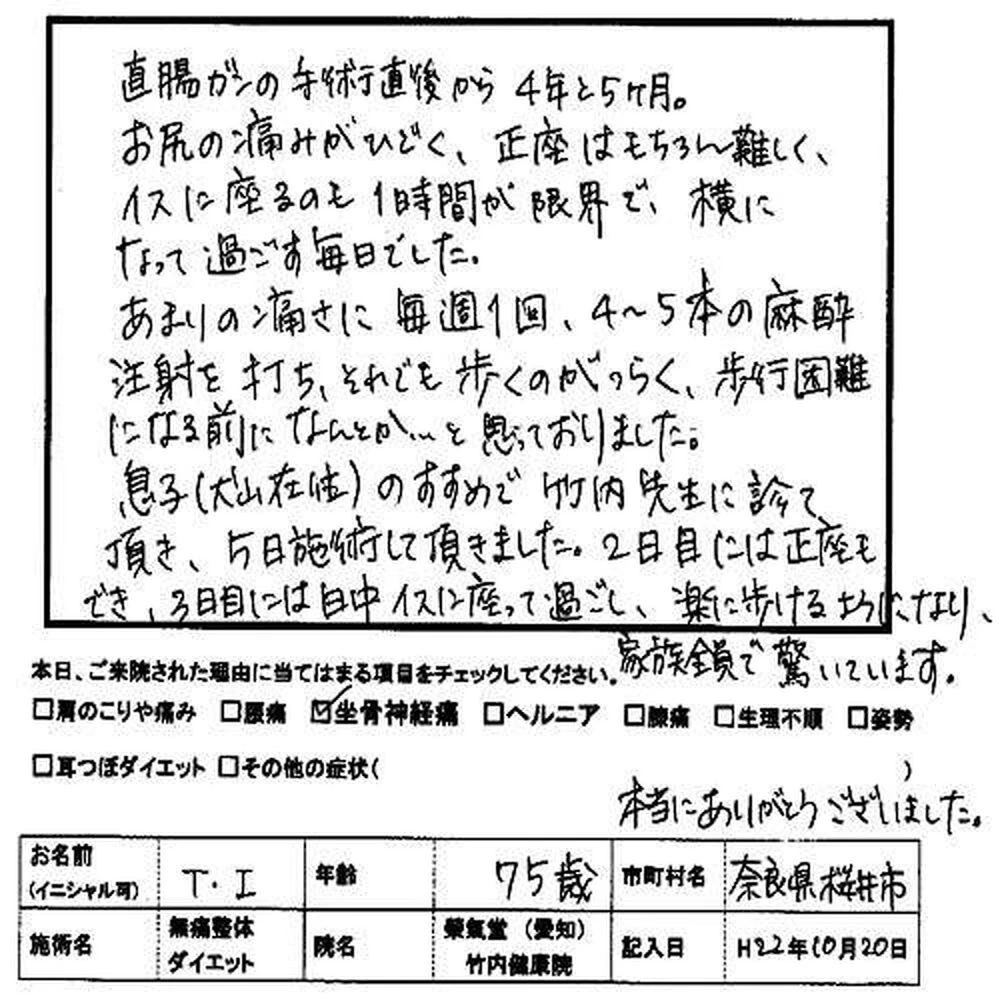 直腸ガンの手術直後から4年と5ヶ月。
お尻の痛みがひどく、正座はもちろん難しく、
イスに座るのも1時間が限界で、横に
なって過ごす毎日でした。
あまりの痛さに毎週1回、4〜5本の麻酔
注射を打ち、それでも歩くのがつらく、歩行困難
になる前になんとか…と思っておりました。
息子(犬山在住)のすすめで竹内先生に診て
頂き、5日施術して頂きました。2日目には正座も
でき、3日目には日中イスに座って過ごし、楽に歩けるようになり、
家族全員で驚いています。
本日、ご来院された理由に当てはまる項目をチェックしてください。
□肩のこりや痛み □腰痛 ☑坐骨神経痛 □ヘルニア □膝痛 □生理不順 □姿勢
□耳つぼダイエット □その他の症状( )
本当にありがとうございました。
お名前 (イニシャル可) T・I 年齢 75歳 市町村名 奈良県桜井市
施術名 無痛整体 ダイエット 院名 榮氣堂(愛知) 竹内健康院 記入日 H22年10月20日